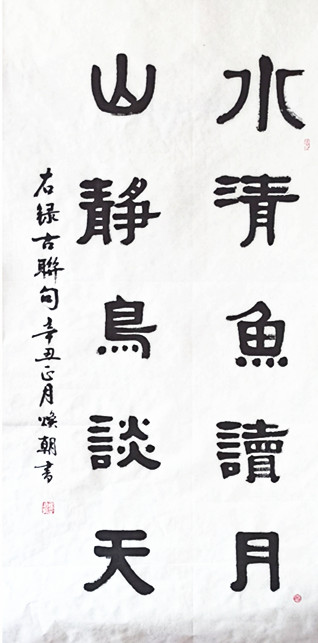 水清魚讀月
山靜鳥談天
右録古聯句辛丑正月煥朝書